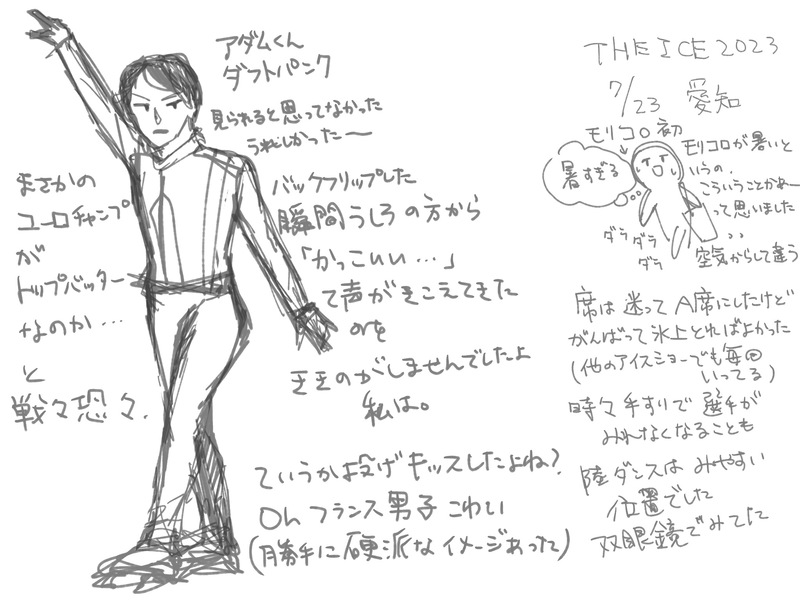 アダムくん
ダフトパンク
見られると思ってなかった
うれしかったー
まさかの
ユーロチャンプ
が
トップバッター
なのか…
と
戦々恐々.
バックフリップした
瞬間うしろの方から
「かっこいい…」
て声がきこえてきた
のを
ききのがしませんでしたよ
私は。
ていうか投げキッスしたよね?
Oh フランス男子 こわい
(勝手に硬派なイメージあった)
THE ICE 2023
7/23 愛知
モリコロ初
暑すぎる
モリコロが暑いと
いうの、
こういうことかぁー
って思いました
ダラ ダラ
ダラ
空気からして違う
席は迷ってA席にしたけど
がんばって氷上とればよかった
(他のアイスショーでも毎回
いってる)
時々手すりで選手が
みれなくなることも
陸ダンスはみやすい
位置でした
双眼鏡でみてた